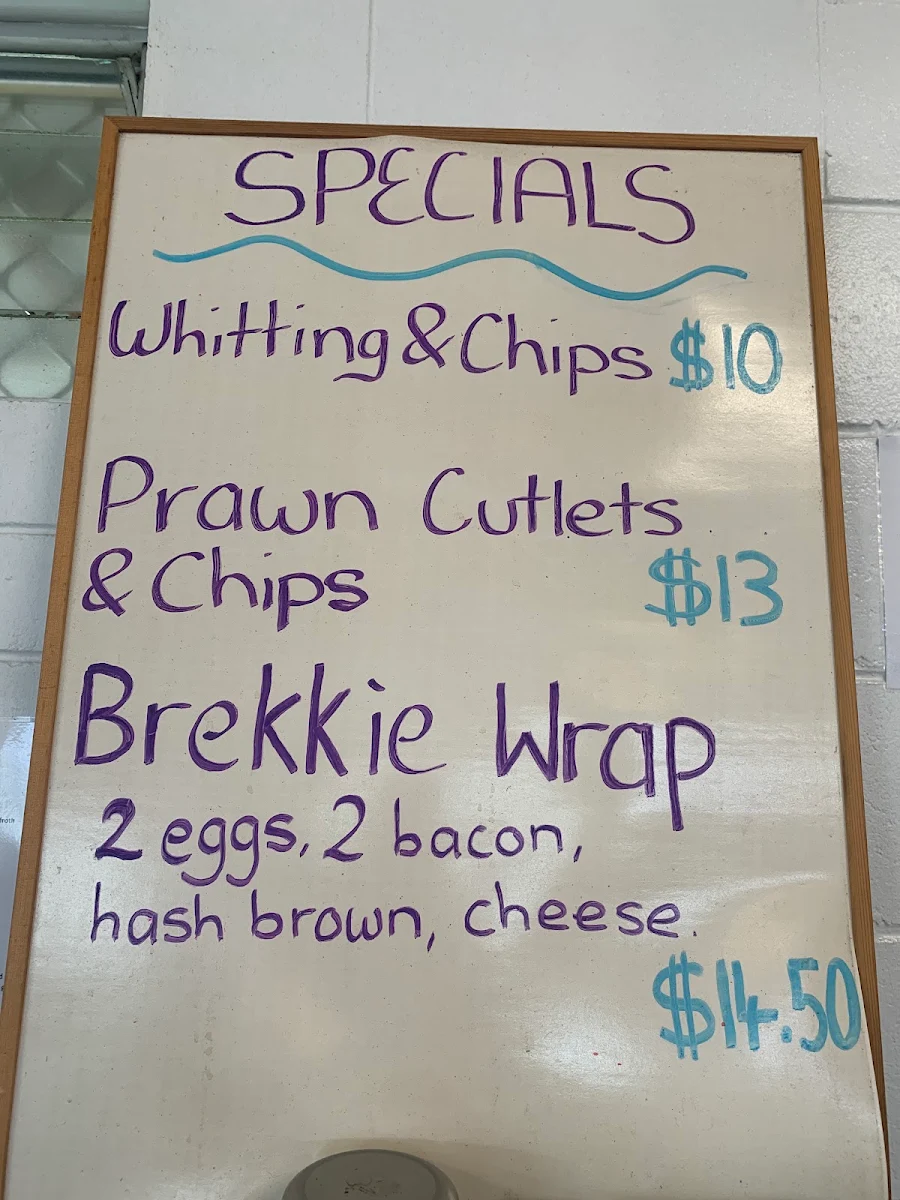 SPECIALS
Whitting & Chips $10
Prawn Cutlets
& Chips $13
Brekkie Wrap
2 eggs, 2 bacon,
hash brown, cheese.
$14.50